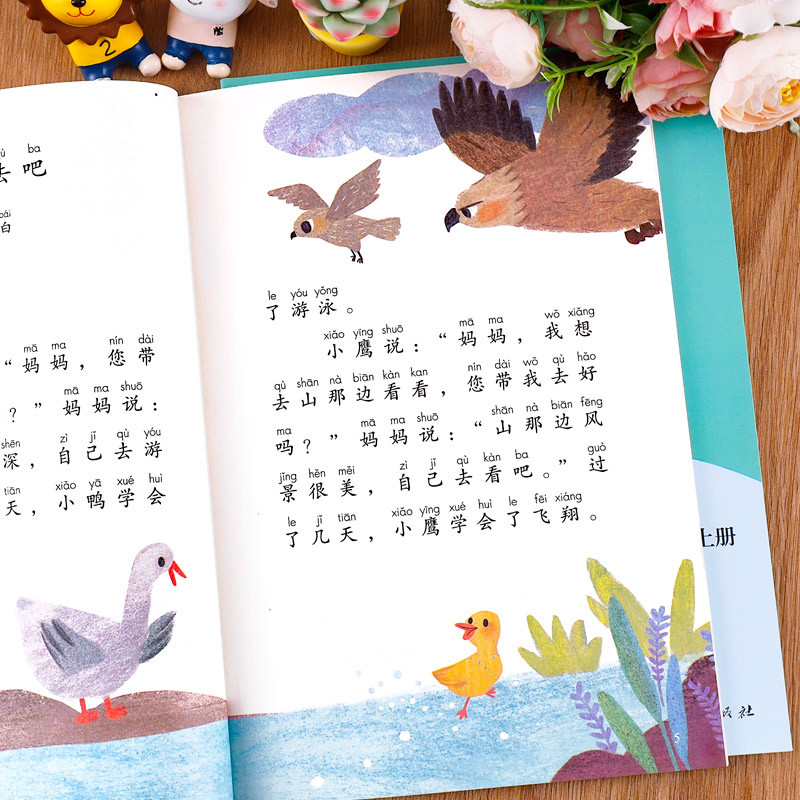 ù ba
去吧
bái
白
mā ma nín dài
“妈妈，您带
mā ma shuō
？”妈妈说：
shēn zì jǐ qù yóu
深，自己去游
tiān xiǎo yā xué huì
天，小鸭学会
le yóu yǒng
了游泳。
xiǎo yīng shuō mā ma wǒ xiǎng
小鹰说：“妈妈，我想
qù shān nà biān kàn kan nín dài wǒ qù hǎo
去山那边看看，您带我去好
ma mā ma shuō shān nà biān fēng
吗？”妈妈说：“山那边风
jǐng hěn měi zì jǐ qù kàn ba guò
景很美，自己去看吧。”过
le jǐ tiān xiǎo yīng xué huì le fēi xiáng
了几天，小鹰学会了飞翔。
5
上册
社
2